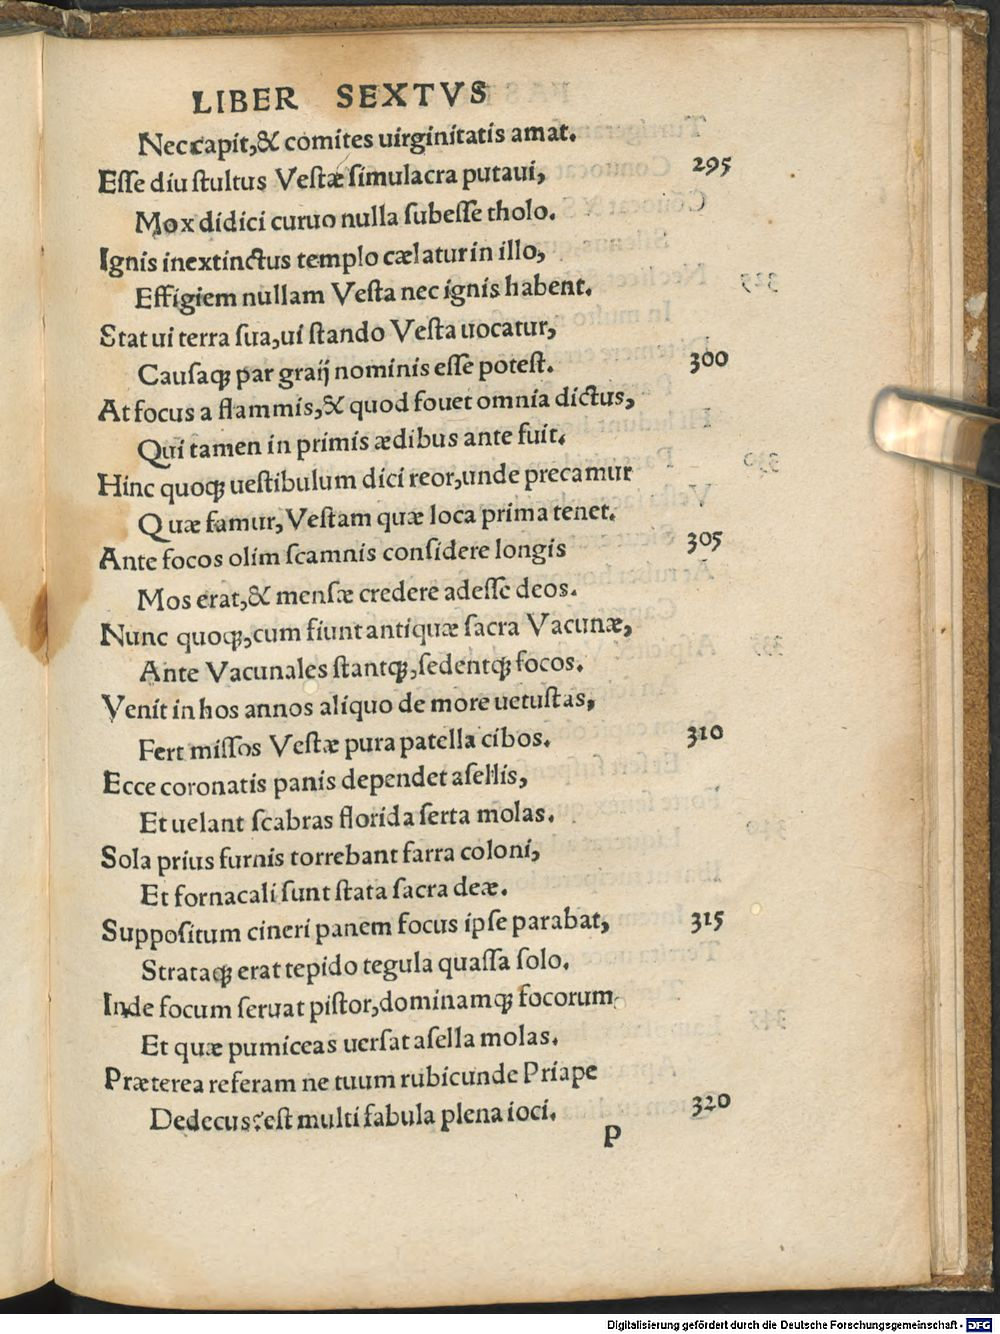 LIBER SEXTVS
Nec capit,& comites uirginitatis amat.
Esse diu stultus Vestæ simulacra putaui, 295
Mox didici curuo nulla subesse tholo.
Ignis inextinctus templo cælatur in illo,
Effigiem nullam Vesta nec ignis habent.
Stat ui terra sua,ui stando Vesta uocatur,
Causaq; par graij nominis esse potest. 300
At focus a flammis,& quod fouet omnia dictus,
Qui tamen in primis ædibus ante fuit.
Hinc quoq; uestibulum dici reor,unde precamur
Quæ famur,Vestam quæ loca prima tenet.
Ante focos olim scamnis considere longis 305
Mos erat,& mensæ credere adesse deos.
Nunc quoq;,cum fiunt antiquæ sacra Vacunæ,
Ante Vacunales stantq;,sedentq; focos.
Venit in hos annos aliquo de more uetustas,
Fert missos Vestæ pura patella cibos. 310
Ecce coronatis panis dependet asellis,
Et uelant scabras florida serta molas.
Sola prius furnis torrebant farra coloni,
Et fornacali sunt stata sacra deæ.
Suppositum cineri panem focus ipse parabat, 315
Strataq; erat tepido tegula quassa solo.
Inde focum seruat pistor,dominamq; focorum
Et quæ pumiceas uersat asella molas.
Præterea referam ne tuum rubicunde Priape
Dedecus? est multi fabula plena ioci. 320
P
Digitalisierung gefördert durch die Deutsche Forschungsgemeinschaft - DFG